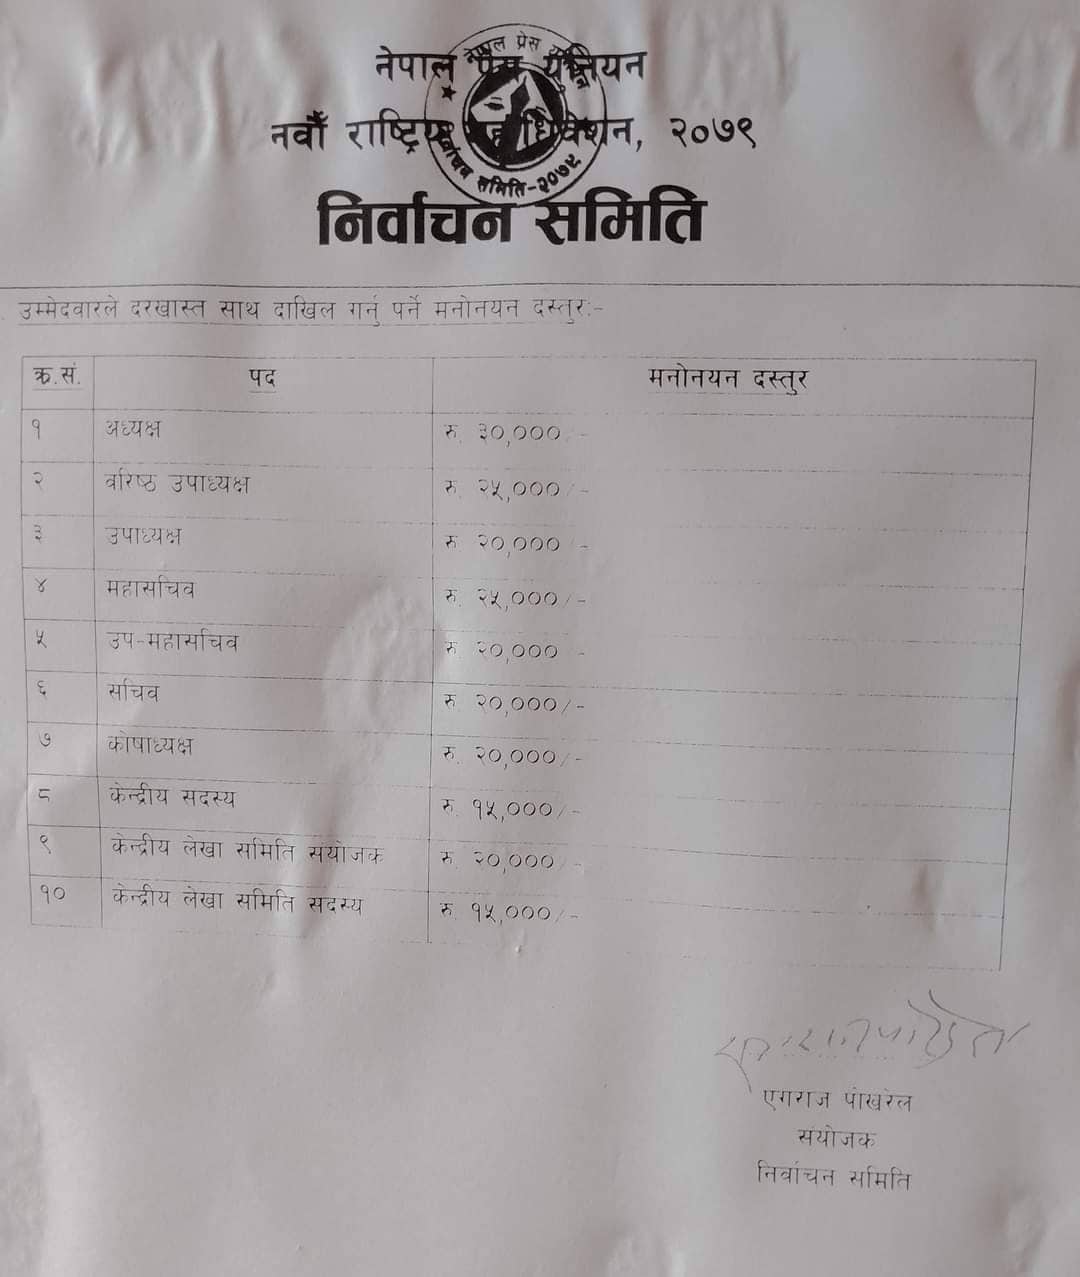 नेपाल प्रेस युनियन
नवौं राष्ट्रिय महाधिवेशन, २०७९
नेपाल प्रेस युनियन
निर्वाचन समिति-२०७९
निर्वाचन समिति
उम्मेदवारले दरखास्त साथ दाखिल गर्नु पर्ने मनोनयन दस्तुरः-
क्र.सं. पद मनोनयन दस्तुर
१ अध्यक्ष रु. ३०,०००/-
२ वरिष्ठ उपाध्यक्ष रु. २५,०००/-
३ उपाध्यक्ष रु २०,०००/-
४ महासचिव रु. २५,०००/-
५ उप-महासचिव रु २०,०००/-
६ सचिव रु २०,०००/-
७ कोषाध्यक्ष रु. २०,०००/-
८ केन्द्रीय सदस्य रु. १५,०००/-
९ केन्द्रीय लेखा समिति संयोजक रु. २०,०००/-
१० केन्द्रीय लेखा समिति सदस्य रु. १५,०००/-
पोखरेल
संयोजक
निर्वाचन समिति